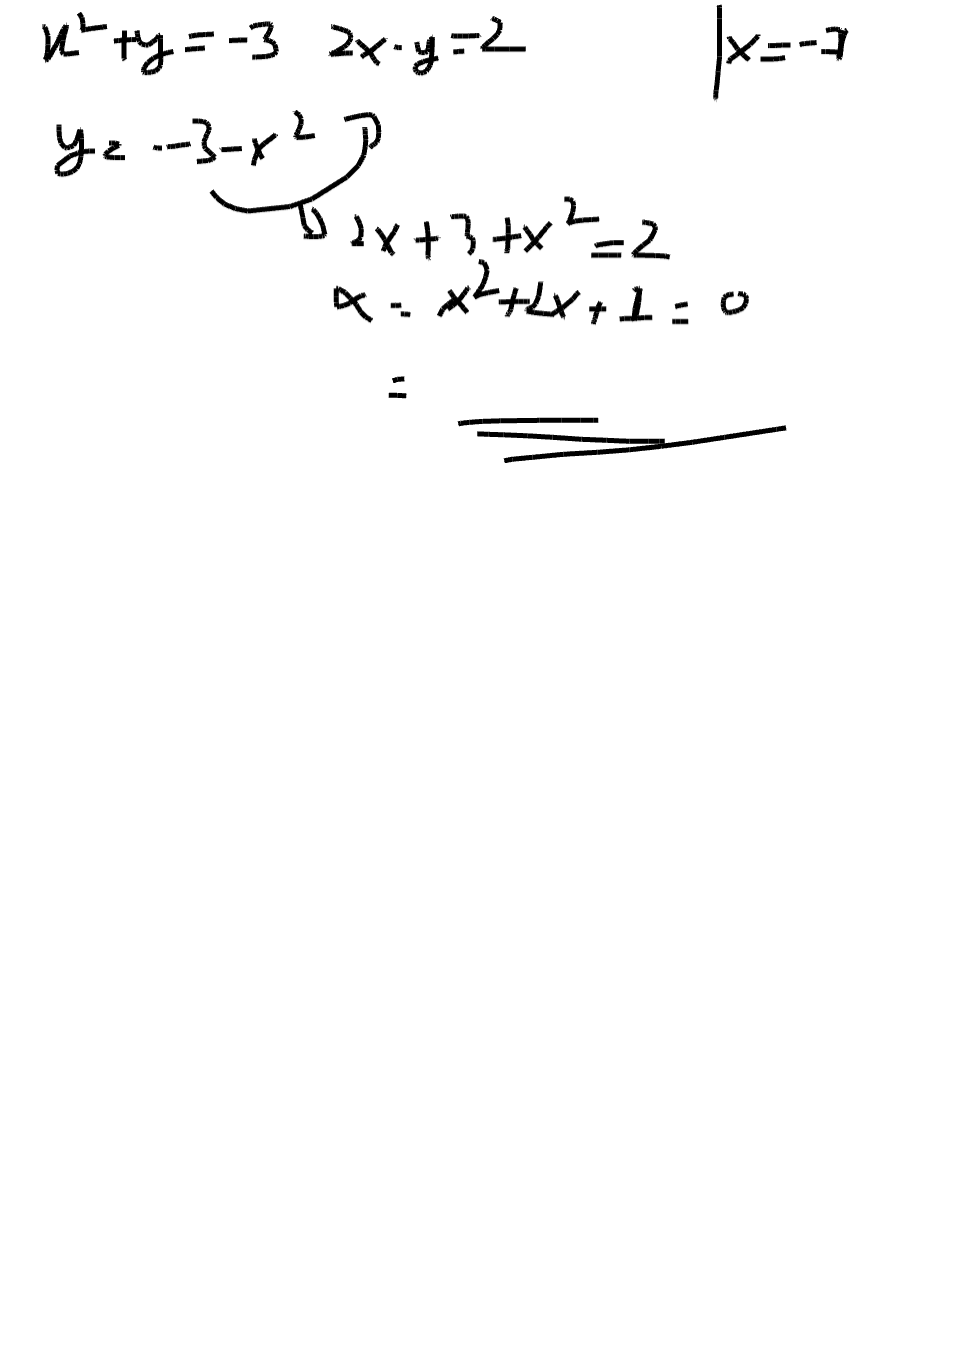 x² + y = -3 2x - y = 2 | x = -1
y = -3 - x²
2x + 3 + x² = 2
x = x² + 2x + 1 = 0
=